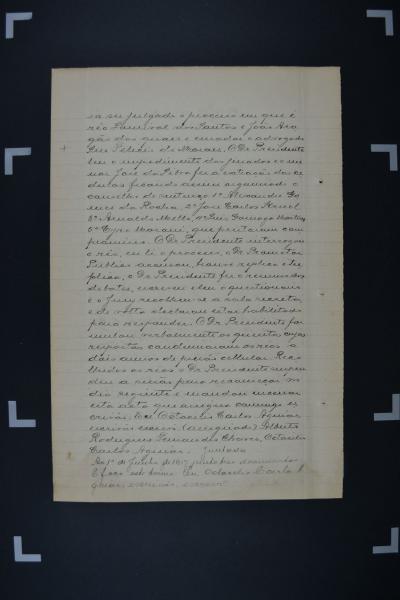 sa ser julgado o processo em que é
réo Lourival dos Santos e João Ara
gão dos quaes é curador e advogado
de Moraes. O Dr Presidente
leu o impedimento dos jurados
José da Silva fez a votação das ce
dulas ficando assim organisado o
conselho de sentença 1º Alexandre Go
mes da Rocha, 2º José Carlos
3º Arnaldo Mello, 4º Luiz Gonzaga Martins
5º Cyro Moraes, que prestaram com
promisso. O Dr Presidente interrogou
o réo, eu li o processo, o Dr Promotor
Publico accusou, houve replica e tre
plica, o Dr Presidente fez o resumo dos
debates, escreveu e leu o questionario
e o Jury recolheu-se a sala secreta,
e de volta declarou estar habilitado
para responder. O Dr Presidente for
mulou verbalmente os quesitos cujas
respostas condemnaram os réos a
dois annos de prisão cellular. Reco
lhidos os réos o Dr Presidente suspen
deu a sessão para recomeçar no
dia seguinte e mandou encerrar
esta acta que assigna commigo es
crivão. Eu Octavio Carlos Aguiar
escrivão escrevi. (assignados) Alberto
Rodrigues Fernandes Chaves, Octavio
Carlos Aguiar. Juntada
Ao 1º de Junho de 1917 junto
E faço este termo. Eu, Octavio Carlos A
guiar, escrivão, escrevi